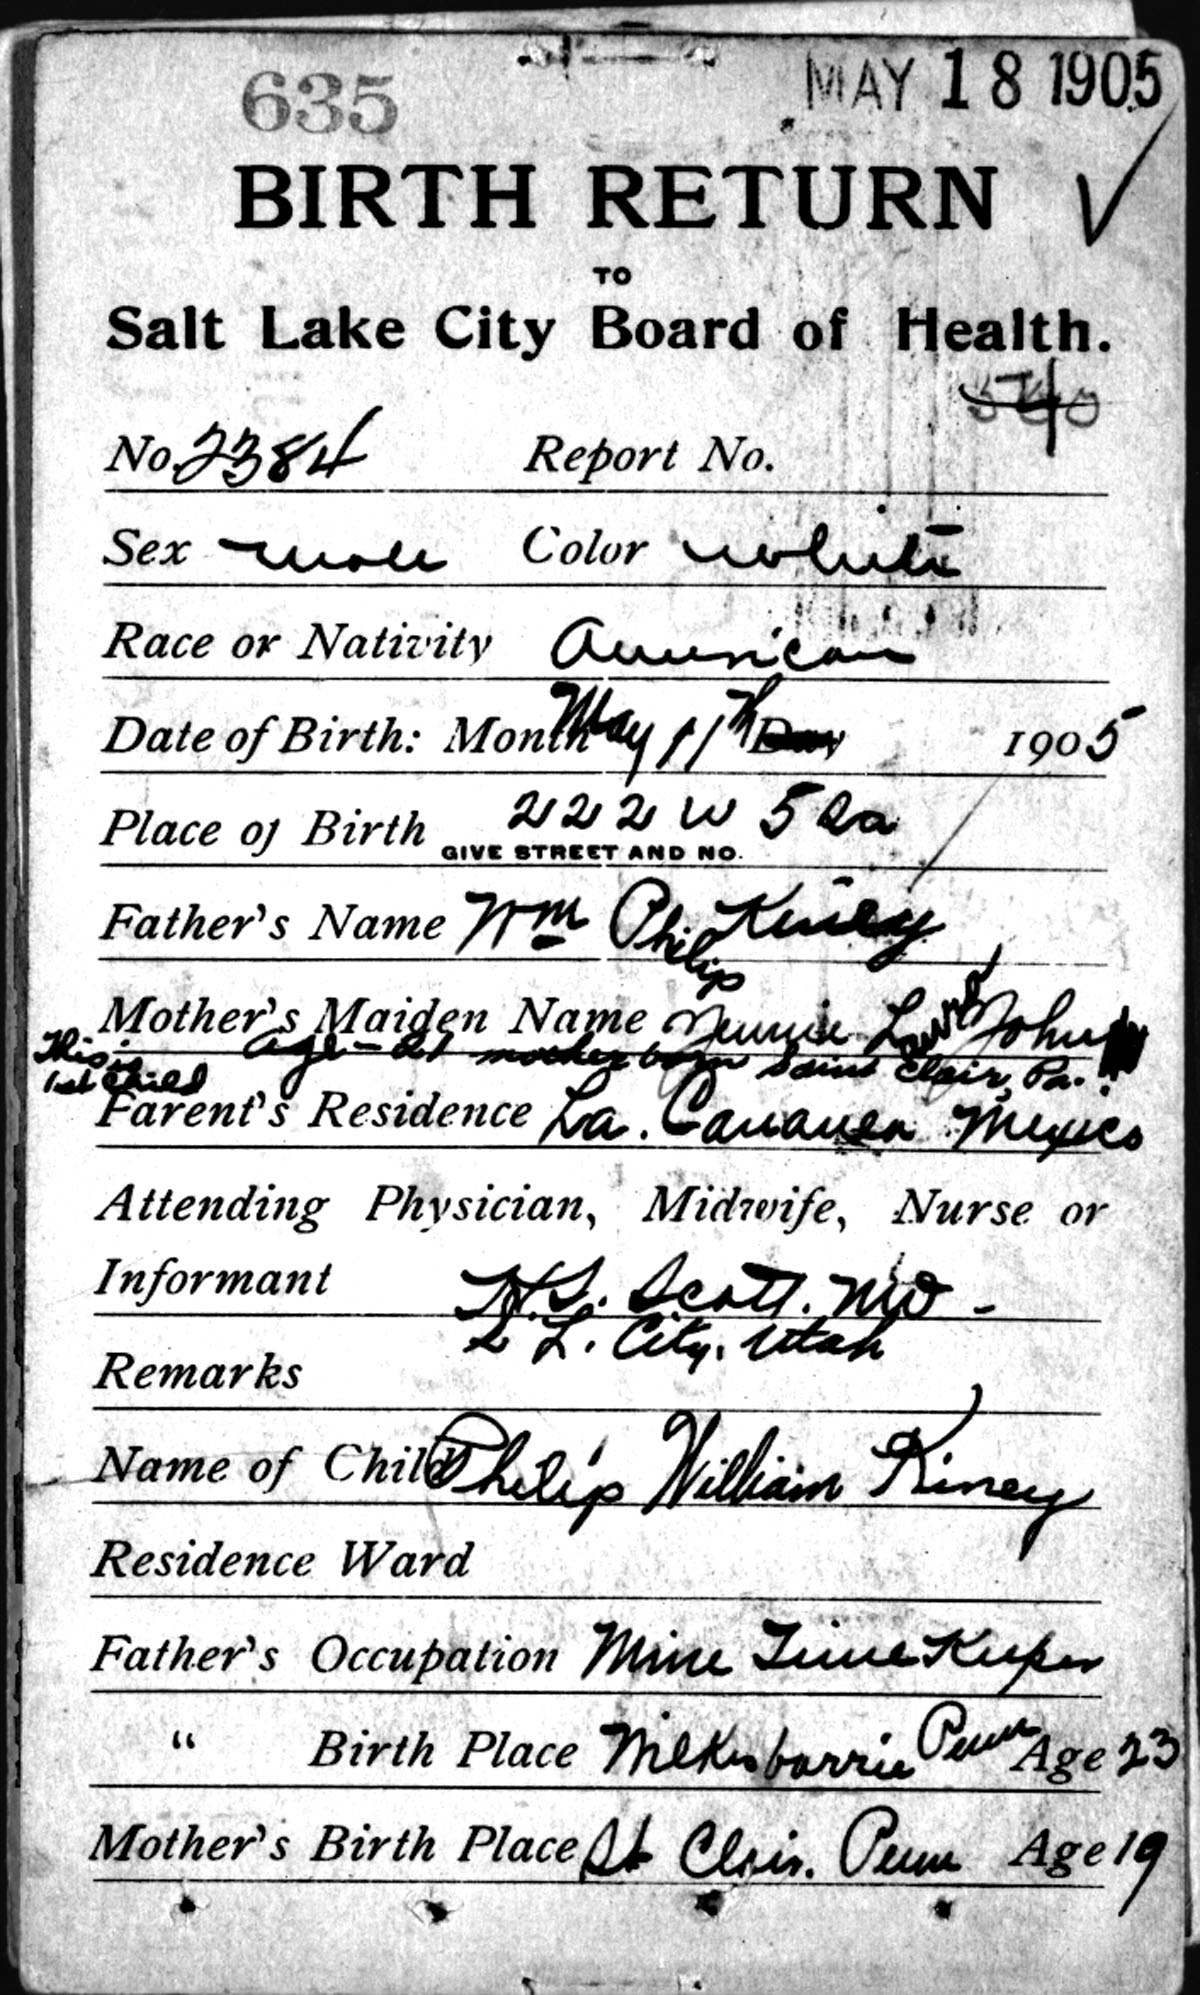 635 MAY 18 1905
BIRTH RETURN
TO
Salt Lake City Board of Health.
No. 2384 Report No.
Sex male Color white
Race or Nativity American
Date of Birth: Month May 11th Day 1905
Place of Birth 222 W 5 So
GIVE STREET AND NO.
Father's Name Wm Philip Kiney
Mother's Maiden Name Jennie Laura John
This is 1st child
age - 21 mother born Saint Clair, Pa.
Parent's Residence La. Cananea Mexico
Attending Physician, Midwife, Nurse or
Informant H.S. Scott. MD -
S L. City. Utah
Remarks
Name of Child Philip William Kiney
Residence Ward
Father's Occupation Mine Time Keeper
" Birth Place Wilkesbarrie Penn Age 23
Mother's Birth Place St Clair. Penn Age 19